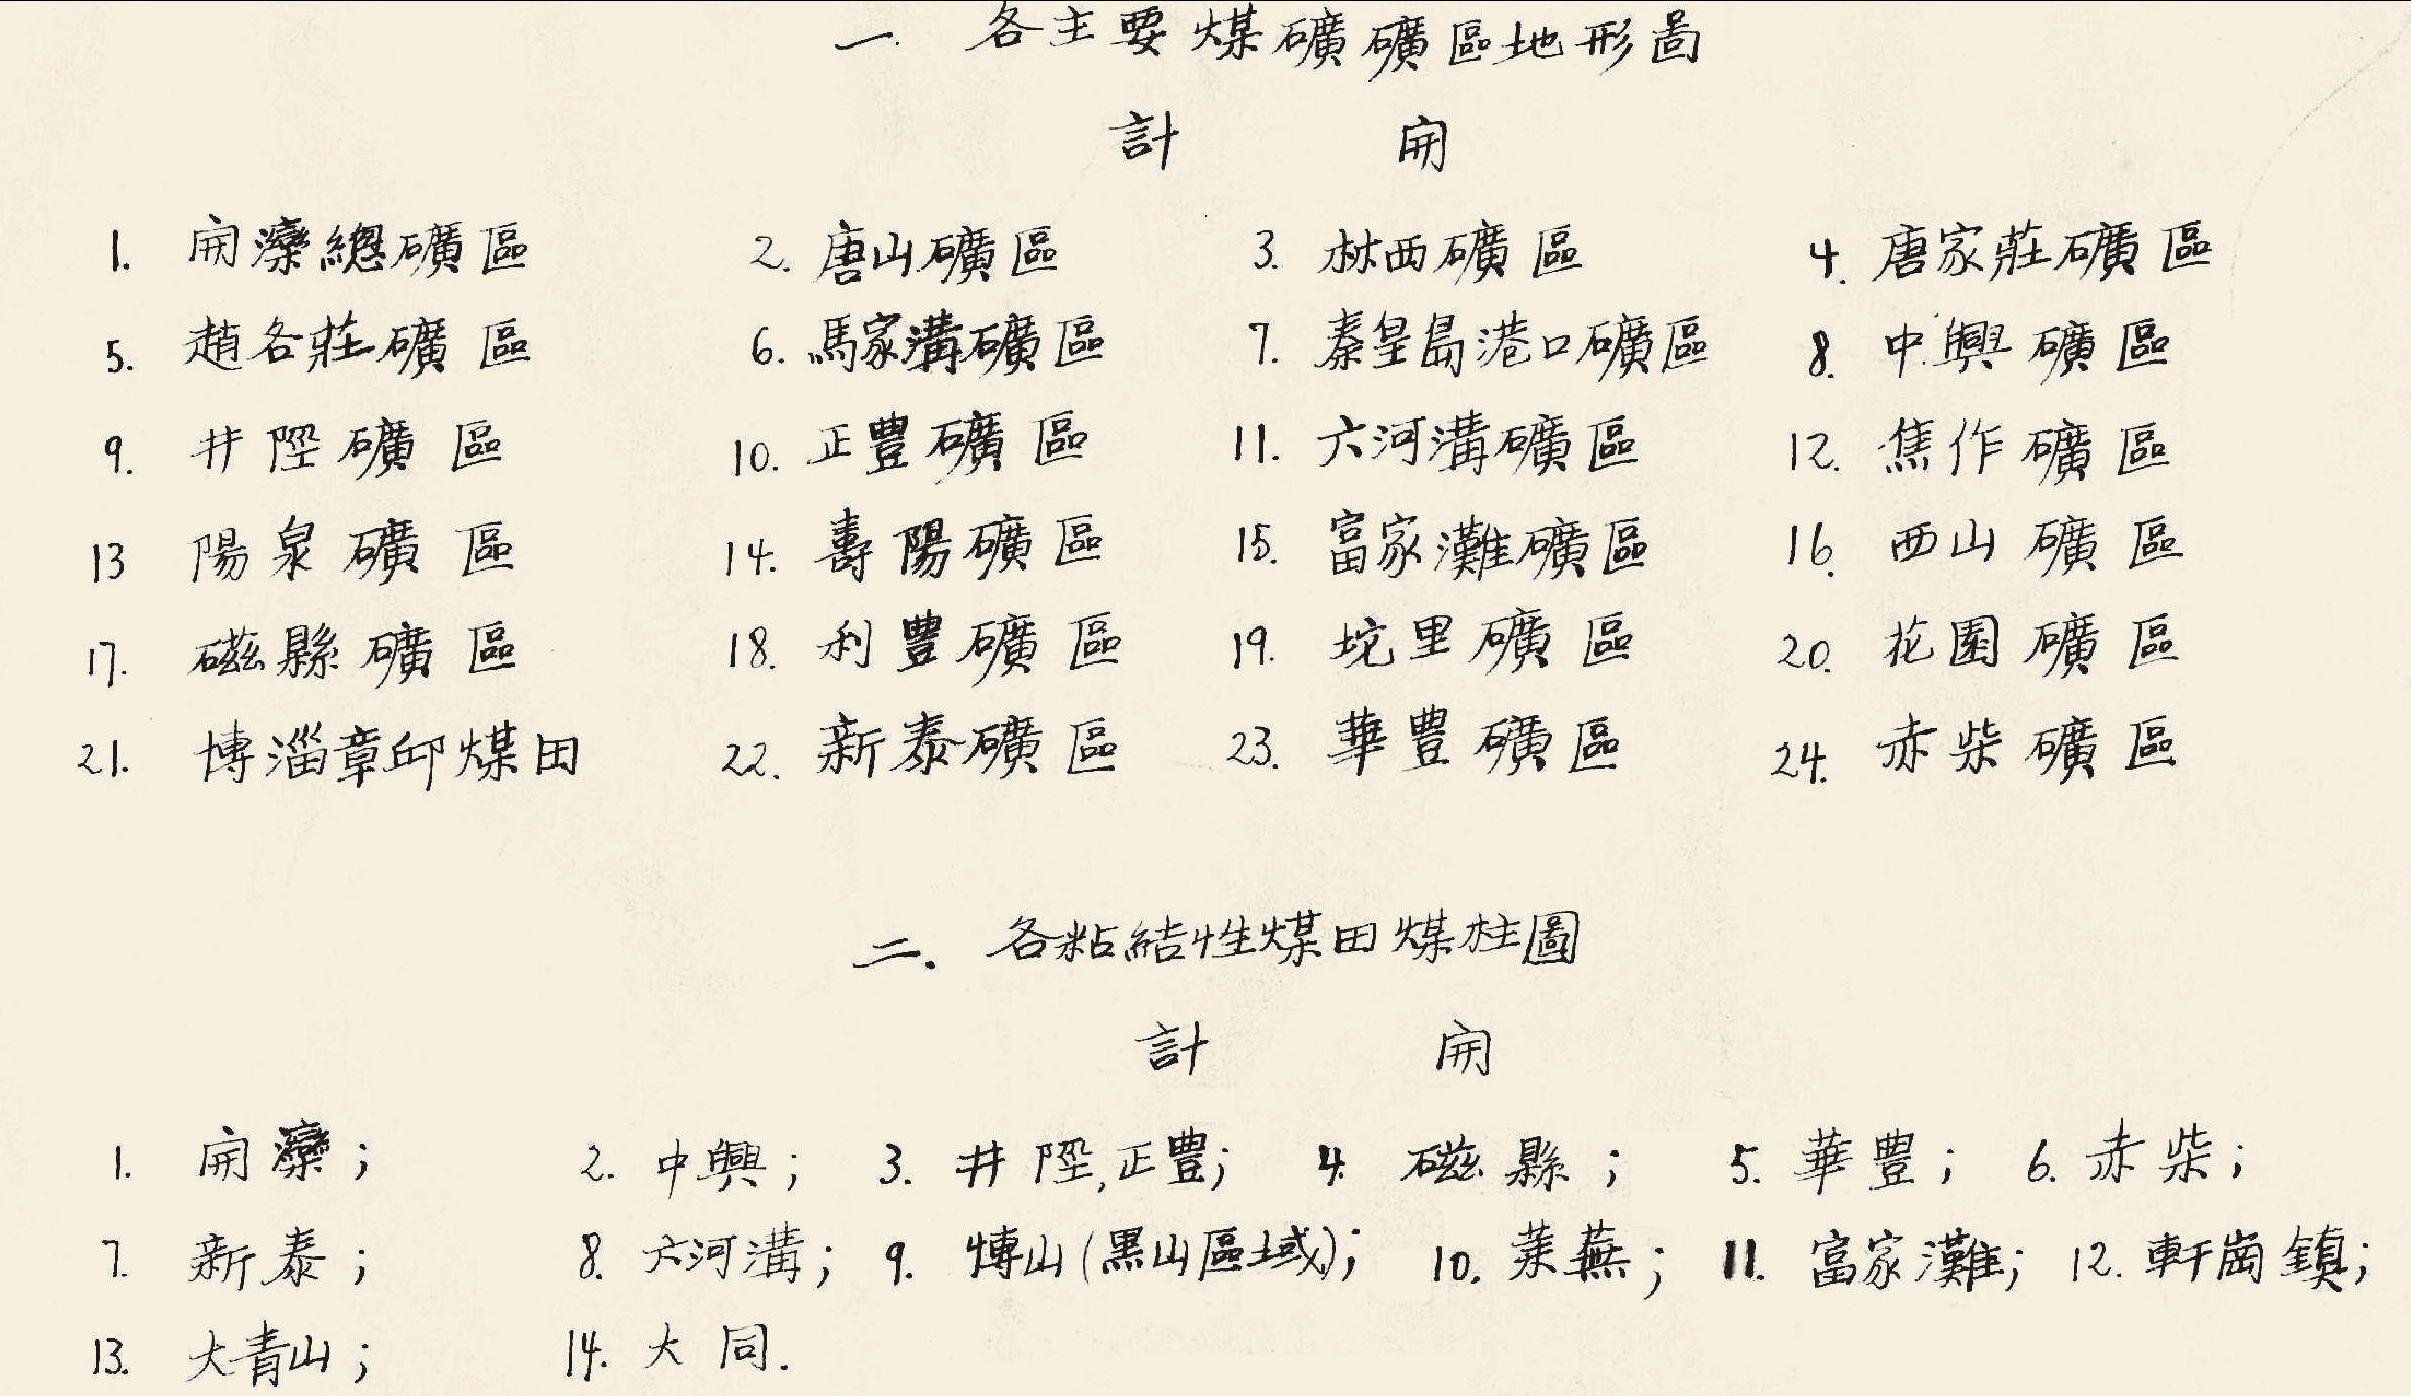 一. 各主要煤礦礦區地形啚
計 開
1. 開灤總礦區 2. 唐山礦區 3. 林西礦區 4. 唐家莊礦區
5. 趙各莊礦區 6. 馬家溝礦區 7. 秦皇島港口礦區 8. 中興礦區
9. 井陘礦區 10. 正豐礦區 11. 六河溝礦區 12. 焦作礦區
13 陽泉礦區 14. 壽陽礦區 15. 富家灘礦區 16. 西山礦區
17. 磁縣礦區 18. 利豐礦區 19. 坨里礦區 20. 花園礦區
21. 博淄章邱煤田 22. 新泰礦區 23. 華豐礦區 24. 赤柴礦區
二. 各粘結性煤田煤柱圖
計 開
1. 開灤; 2. 中興; 3. 井陘,正豐; 4. 磁縣; 5. 華豐; 6. 赤柴;
7. 新泰; 8. 六河溝; 9. 博山(黑山區域); 10. 萊蕪; 11. 富家灘; 12. 軒崗鎮;
13. 大青山; 14. 大同.